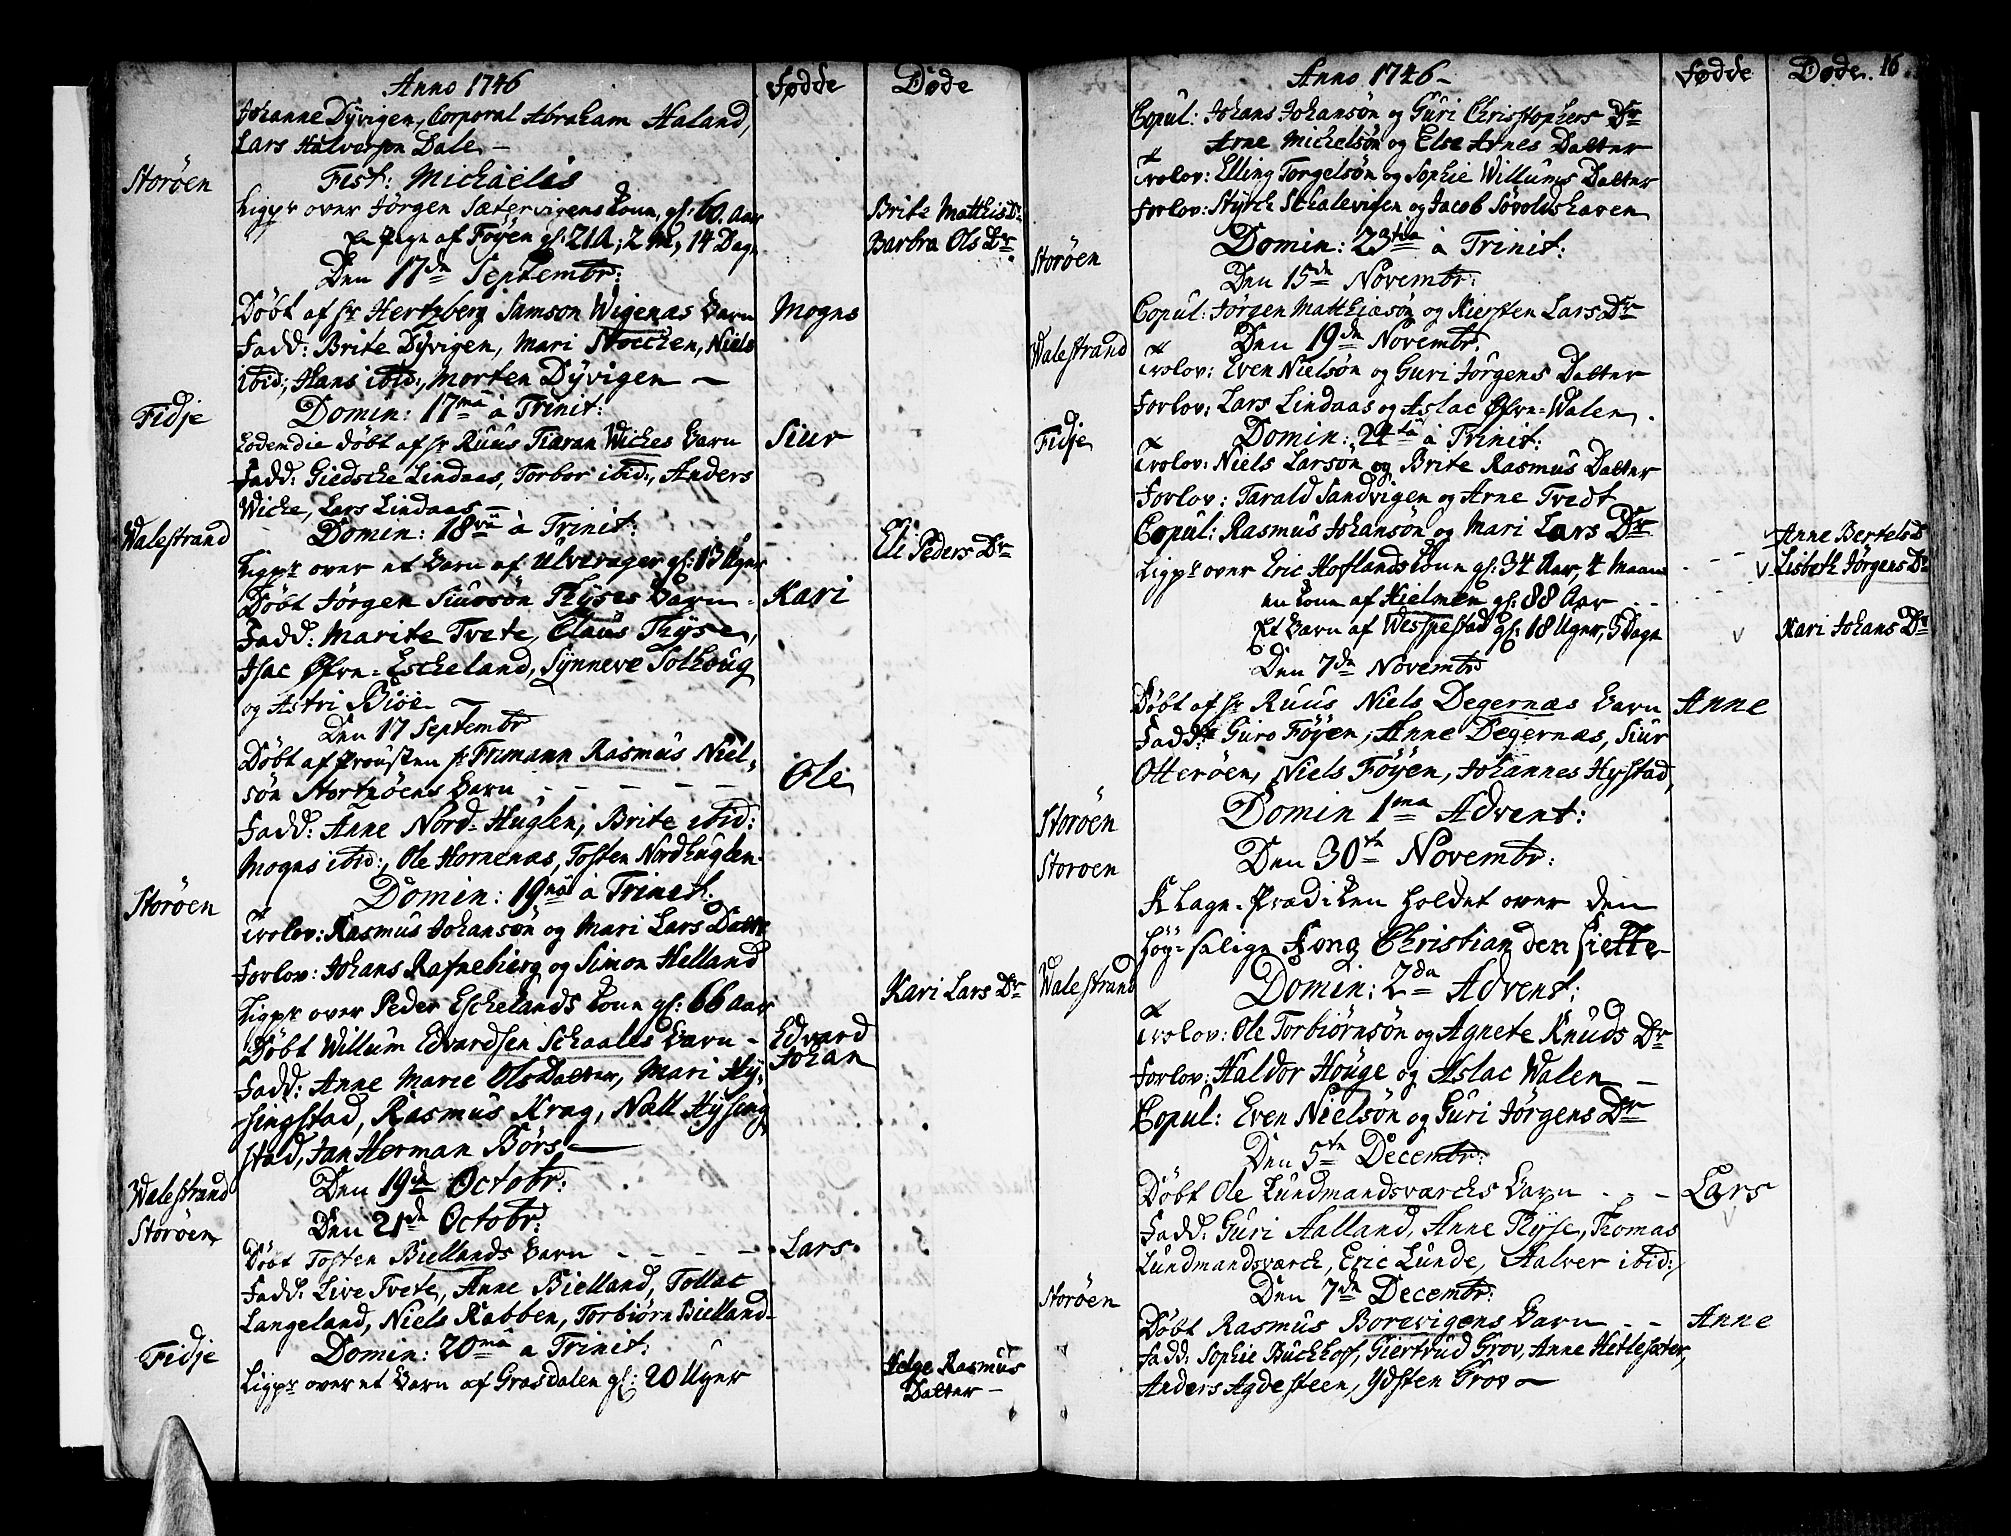 Anno 1746 Fødde Døde
Johanne Dyvigen, Corporal Abraham Haland,
Lars Halvorsen Dale –
Storöen
Fest: Michaelis
Ligpr over Jørgen Sætervigens Konn, gl: 60. Aar Brite Matthis Dr
En Pege af Föyen gl: 21 A; 2 M, 14 Dage Barbra Ols Dr
Den 17de Septembr:
Döbt af Hr Hertzberg Samson Wigenæs Barn Mogns
Fadd: Brite Dyvigen, Mari Stocken, Niels
ibid:, Hans ibid:, Morten Dyvigen –
Fidje
Domin: 17ma à Trinit:
Eodem die döbt af Hr Ruus Tiaran Wickes Barn Siur
Fadd: Giedske Lindaas, Torbor ibid:, Anders
Wicke, Lars Lindaas –
Walestrand
Domin: 18va à Trinit:
Ligpr over et Barn af Ulverager gl: 13 Uger Eli Peders Dr
Döbt Jørgen Siursön Thyses Barn Kari
Fadd: Marite Tvete, Claus Thyse,
Isac Øfre-Eskeland, Synneve Solhoug
og Astri Biöe –
Den 17 Septembr
Döbt af Prousten Hr Frimann Rasmus Niel-
sön Stortröens Barn – – – – – Ole
Fadd: Anne Nord-Huglen, Brite ibid:
Mogns ibid:, Ole Hornenæs, Tosten Nordhuglen
Storöen
Domin: 19na à Trinit:
Trolov: Rasmus Johansön og Mari Lars Datter
Forlov: Johans Rafnebierg og Simon Helland
Ligpr over Peder Eskelands Konn gl: 66 Aar Kari Lars Dr
Döbt Willum Edvardsen Schaales Barn – Edvard Johan
Fadd: Anne Marie Ols Datter, Mari Hy-
singstad, Rasmus Krag, Nall Hysing
stad, Jan Herman Börs –
Walestrand
Den 19de Octobr:
Storöen
Den 21de Octobr:
Döbt Tosten Biellands Barn – – – – Lars
Fadd: Live Tvete, Anne Bielland, Tollac
Langeland, Niels Rabben, Torbiörn Bielland
Fidje
Domin: 20ma a Trinit:
Ligpr over et Barn af Grasdalen gl: 20 Uger Helge Rasmus
Datter –
Anno 1746 – Fødde Døde. 16.
Copul: Johans Johansön og Guri Christophers Dr
Arne Michelsön og Else Arnes Datter
Trolov: Elling Torgelsön og Sophie Willums Datter
Forlov: Styrck Skalevigen og Jacob Sövoldshaven
Storöen
Domin: 23tia à Trinit:
Den 15de Novembr:
Copul: Jörgen Matthiasön og Kiersten Lars Dr
Walestrand
Den 19de Novembr:
Trolov: Even Nielsön og Guri Jörgens Datter
Forlov: Lars Lindaas og Aslac Øfre-Walen.
Fidje
Domin: 24ta à Trinit:
Trolov: Niels Larsön og Brite Rasmus Datter
Forlov: Tarald Sandvigen og Arne Tvedt
Copul: Rasmus Johansön og Mari Lars Dr Anne Bertels D
Ligpr over Eric Hoflands Konn gl: 34 Aar, 4 Maan Lisbeth Jörgens Dr
en Konn af Hielmen gl: 88 Aar – –
Et Barn af Wespestad gl: 18 Uger, 5 Dage Kari Johans Dr
Den 7de Novembr
Döbt af Hr Ruus Niels Degernæs Barn Anne
Fadd: Guro Föyen, Anne Degernæs, Siur
Otteröen, Niels Föyen, Johannes Hystad,
Storöen
Domin 1ma Advent:
Storoen
Den 30te Novembr:
Klage-Prædiken holdet over den
höy-salige Kong Christian den siette –
Walestrand
Domin: 2da Advent:
Trolov: Ole Torbiörnsön og Agnete Knuds Dr
Forlov: Haldor Höuge og Aslac Walen –
Copul: Even Nielsön og Guri Jörgens Dr
Den 5te Decembr:
Döbt Ole Lundmandsværcks Barn – – – Lars
Fadd: Guri Aalland, Anne Thyse, Thomas
Lundmandsværck, Eric Lunde, Aalver ibid:
Storöen
Den 7de Decembr:
Döbt Rasmus Borevigens Barn – – Anne
Fadd: Sophie Buckhof, Giertrud Grov, Anne Hetlesæter,
Anders Agdesteen, Ydsten Grov –